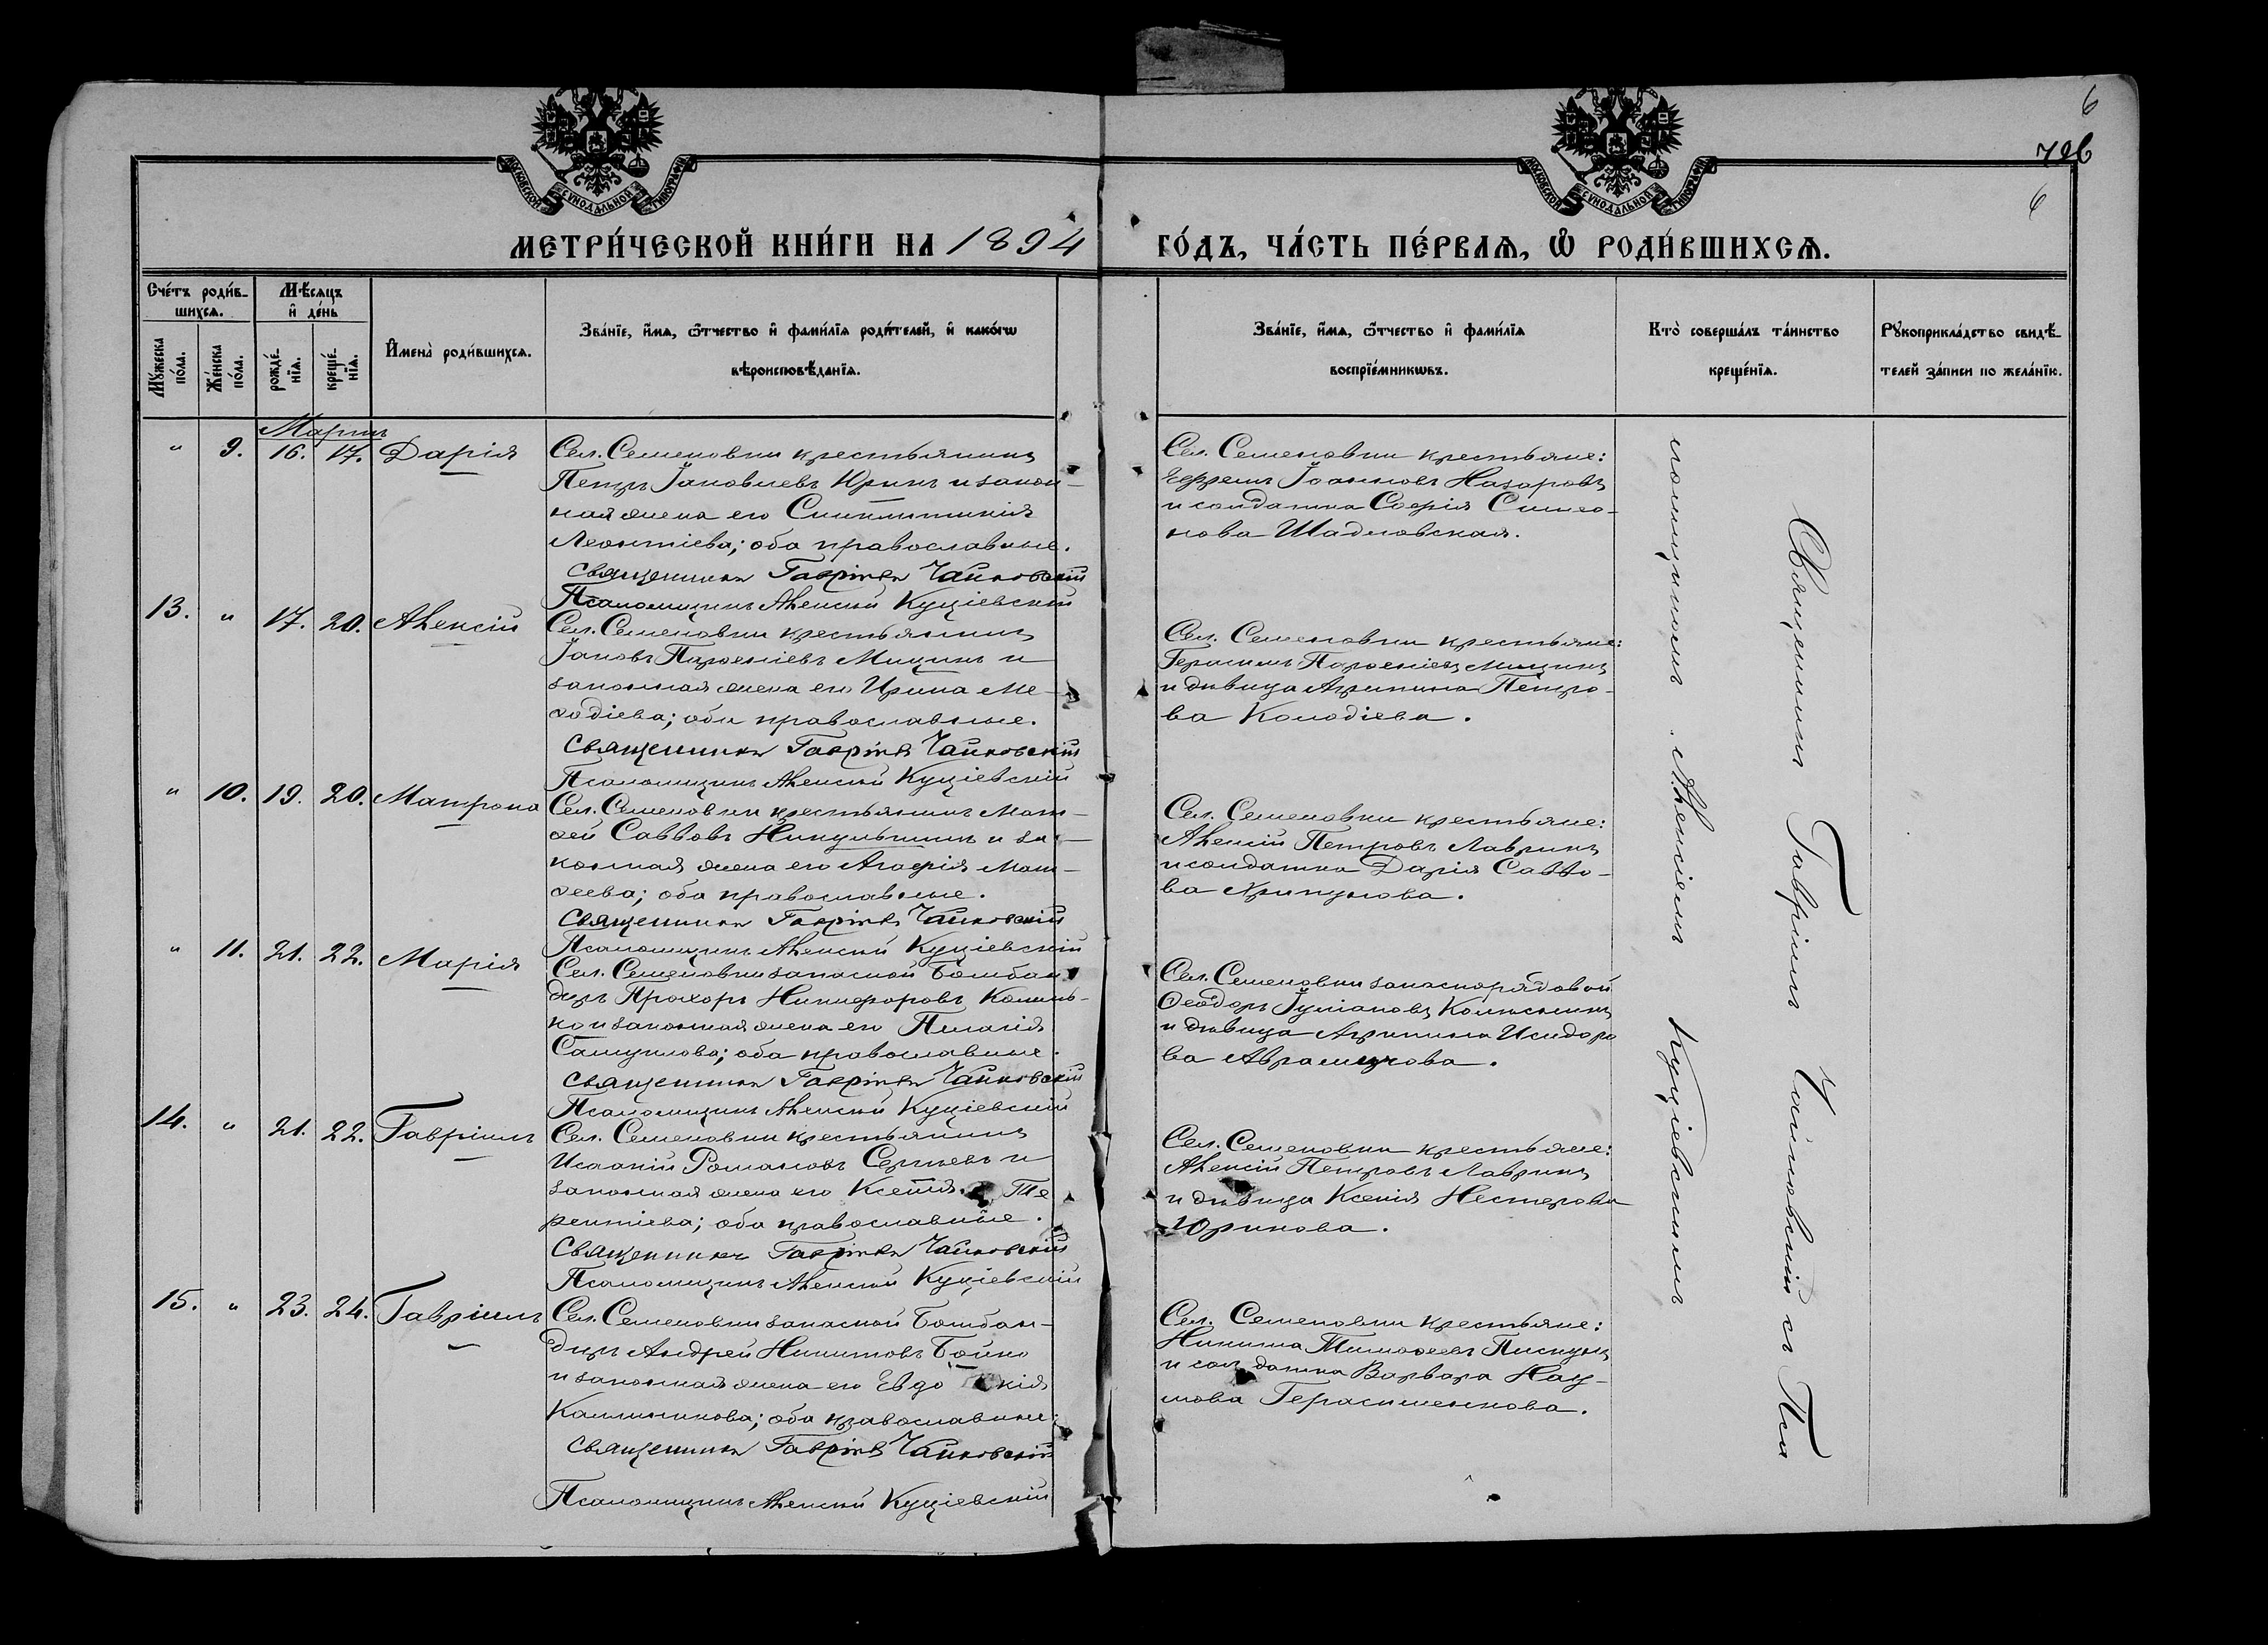 6
796
6
МОСКОВСКОЙ СѴНОДАЛЬНОЙ ТИПОГРАФІИ
МОСКОВСКОЙ СѴНОДАЛЬНОЙ ТИПОГРАФІИ
МЕТРИ́ЧЕСКОЙ КНИ́ГИ НА 1894 ГО́ДЪ, ЧА́СТЬ ПЕ́РВАѦ, Ѡ РОДИ́ВШИХСѦ.
Сче́тъ роди́в-
шихсѧ.
Мѣ́сѧцъ
и҆ де́нь
Мꙋ́жеска по́ла.
Же́нска по́ла.
рожде́-
нїѧ.
креще́-
нїѧ.
И҆мена̀ роди́вшихсѧ.
Зва́нїе, и҆́мѧ, ѻ҆́тчество и҆ фами́лїѧ роди́телей, и҆ како́гѡ
вѣроисповѣ́данїѧ.
Зва́нїе, и҆́мѧ, ѻ҆́тчество и҆ фами́лїѧ
воспрїе́мникѡвъ.
Кто̀ соверша́лъ та́инство
креще́нїѧ.
Рꙋкоприкла́дство свидѣ́-
телей за́писи по жела́нїю.
Мартъ
" 9. 16. 17. Дарія
Сел. Семеновки крестьянинъ
Петръ Іаковлевъ Юринъ и закон-
ная жена его Синклитикія
Леонтіева; оба православные.
Священникъ Гавріилъ Чайковскій
Псаломщикъ Алексій Куціевскій
Сел. Семеновки крестьяне:
Ефремъ Іоанновъ Назаровъ
и солдатка Софія Симео-
нова Шадловская.
13. " 17. 20. Алексій
Сел. Семеновки крестьянинъ
Іаковъ Парѳеніевъ Мицинъ и
законная жена его Ирина Ме-
ѳодіева; оба православные.
Священникъ Гавріилъ Чайковскій
Псаломщикъ Алексій Куціевскій
Сел. Семеновки крестьяне:
Герасимъ Парѳеніевъ Мицинъ
и дѣвица Агрипина Петро-
ва Колодіева.
" 10. 19. 20. Матрона
Сел. Семеновки крестьянинъ Мат-
ѳей Саввовъ Никульшинъ и за-
конная жена его Агафія Мат-
ѳеева; оба православные.
Священникъ Гавріилъ Чайковскій
Псаломщикъ Алексій Куціевскій
Сел. Семеновки крестьяне:
Алексій Петровъ Лавринъ
и солдатка Дарія Савво-
ва Хрипунова.
" 11. 21. 22. Марія
Сел. Семеновки запасной Бомбан-
диръ Прохоръ Никифоровъ
и законная жена его Пелагія
Самуилова; оба православные.
Священникъ Гавріилъ Чайковскій
Псаломщикъ Алексій Куціевскій
Сел. Семеновки запасной рядовой
Ѳеодоръ Іуліановъ
и дѣвица Агрипина Исидоро
ва
14. " 21. 22. Гавріилъ
Сел. Семеновки крестьянинъ
Исаакій Романовъ Сергеевъ и
законная жена его Ксенія Те
рентіева; оба православные.
Священникъ Гавріилъ Чайковскій
Псаломщикъ Алексій Куціевскій
Сел. Семеновки крестьяне:
Алексій Петровъ Лавринъ
и дѣвица Ксенія Нестерова
Юринова.
15. " 23. 24. Гавріилъ
Сел. Семеновки запасной Бомбан-
диръ Андрей Никитовъ Бойко
и законная жена его Евдокія
Каллиникова; оба православные;
Священникъ Гавріилъ Чайковскій
Псаломщикъ Алексій Куціевскій
Сел. Семеновки крестьяне:
Никита Тимоѳеевъ Пискунъ
и солдатка Варвара Нау-
мова Герасименкова.
Священникъ Гавріилъ Чайковскій съ Пса
ломщикомъ Алексіемъ Куціевскимъ